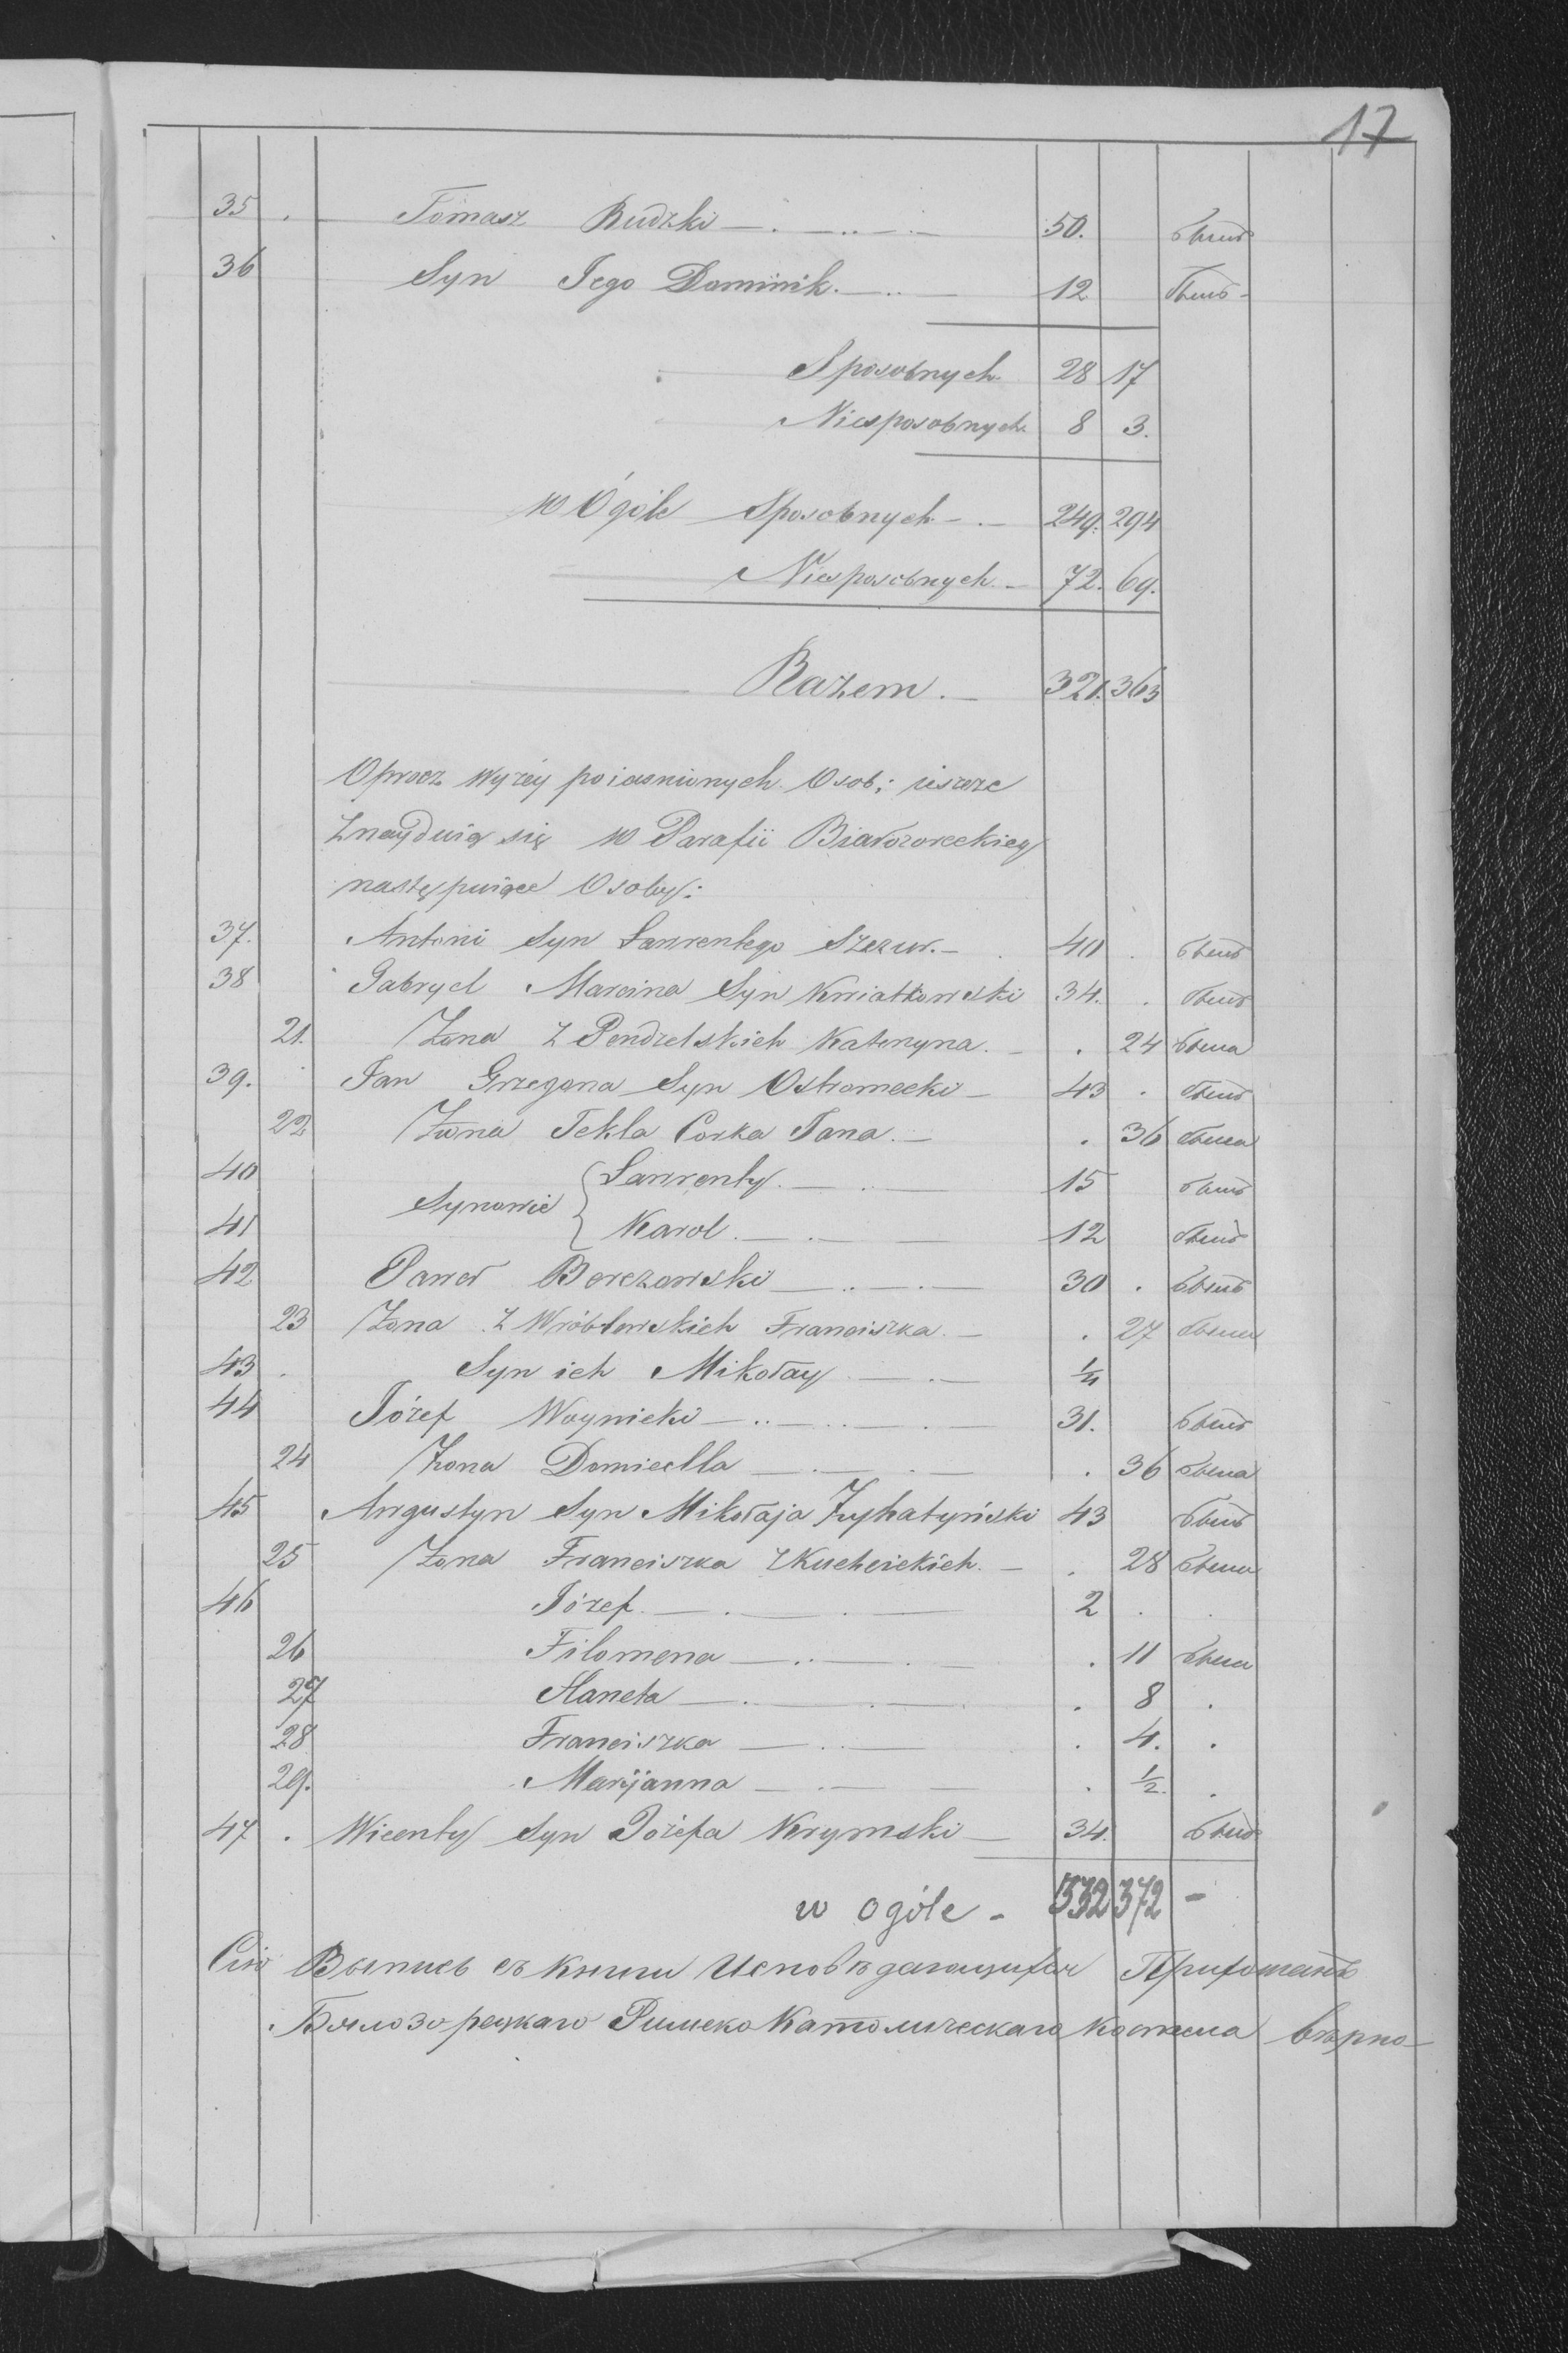 17
35 . Tomasz Rudzki 50. былъ
36 Syn Jego Dominik. 12 былъ
Sposobnych. 28 17
Niesposobnych 8 3.
w Ogóle Sposobnych 249. 294
Niesposobnych. 72. 69.
Razem. 321. 363
Oprocz wyżey poiasnionych Osob; ieszcze
znayduią się w Parafii Białozoreckiey
następuiące Osoby:
37. Antoni Syn Lawrentego 40 . былъ
38 Gabryel Marcina Syn Kwiatkowski 34. . былъ
21. Żona z Pendzelskich Kateryna. . 24 была
39. Jan Grzegorza Syn Ostromecki 43 . былъ
22 Żona Tekla Corka Jana. . 36 была
40 Lawrenty. 15 былъ
Synowie
41 Karol. 12 былъ
42 Paweł Berezowski 30 . былъ
23 Żona z Wróblewskich Franciszka. . 27 была
43 . Syn ich Mikołay 1/4
44 Józef Woynicki 31. былъ
24 Żona Domicella . 36 была
45 Augustyn Syn Mikołaja 43 былъ
25 Żona Franciszka z . 28 была
46 Józef. 2 . .
26 Filomena . 11 была
27 Żaneta . 8 .
28 Franciszka . 4. .
29. Maryanna . 1/2. .
47 . Wicenty Syn Józefa Krymski 34. былъ
w ogóle - 332 372 -
Сію Выпись съ книги Исповѣдающихся Прихожанъ
Бялозорецкаго Римско Католическаго Костела вѣрно